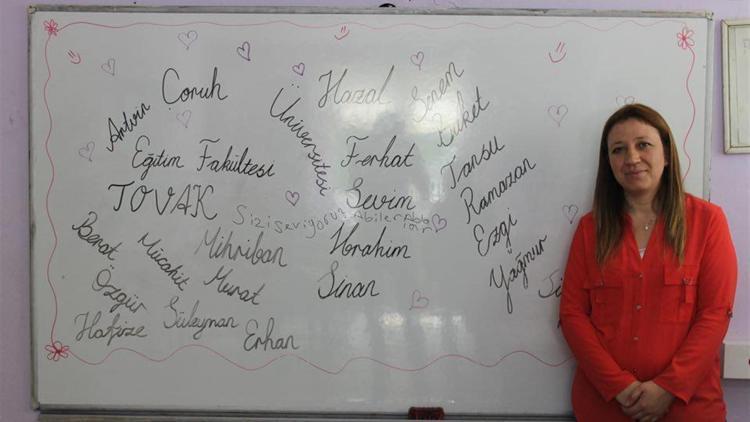 Artvin
Çoruh
Üniversitesi
Eğitim Fakültesi
TOVAK
Hazal
Senem
Buket
Ferhat
Tansu
Sevim
Ramazan
Sizi seviyoruz Abiler Abla
lar
Ezgi
İbrahim
Yağmur
Sinan
Berat
Mücahit
Mihriban
Özgür
Murat
Hafize
Süleyman
Erhan